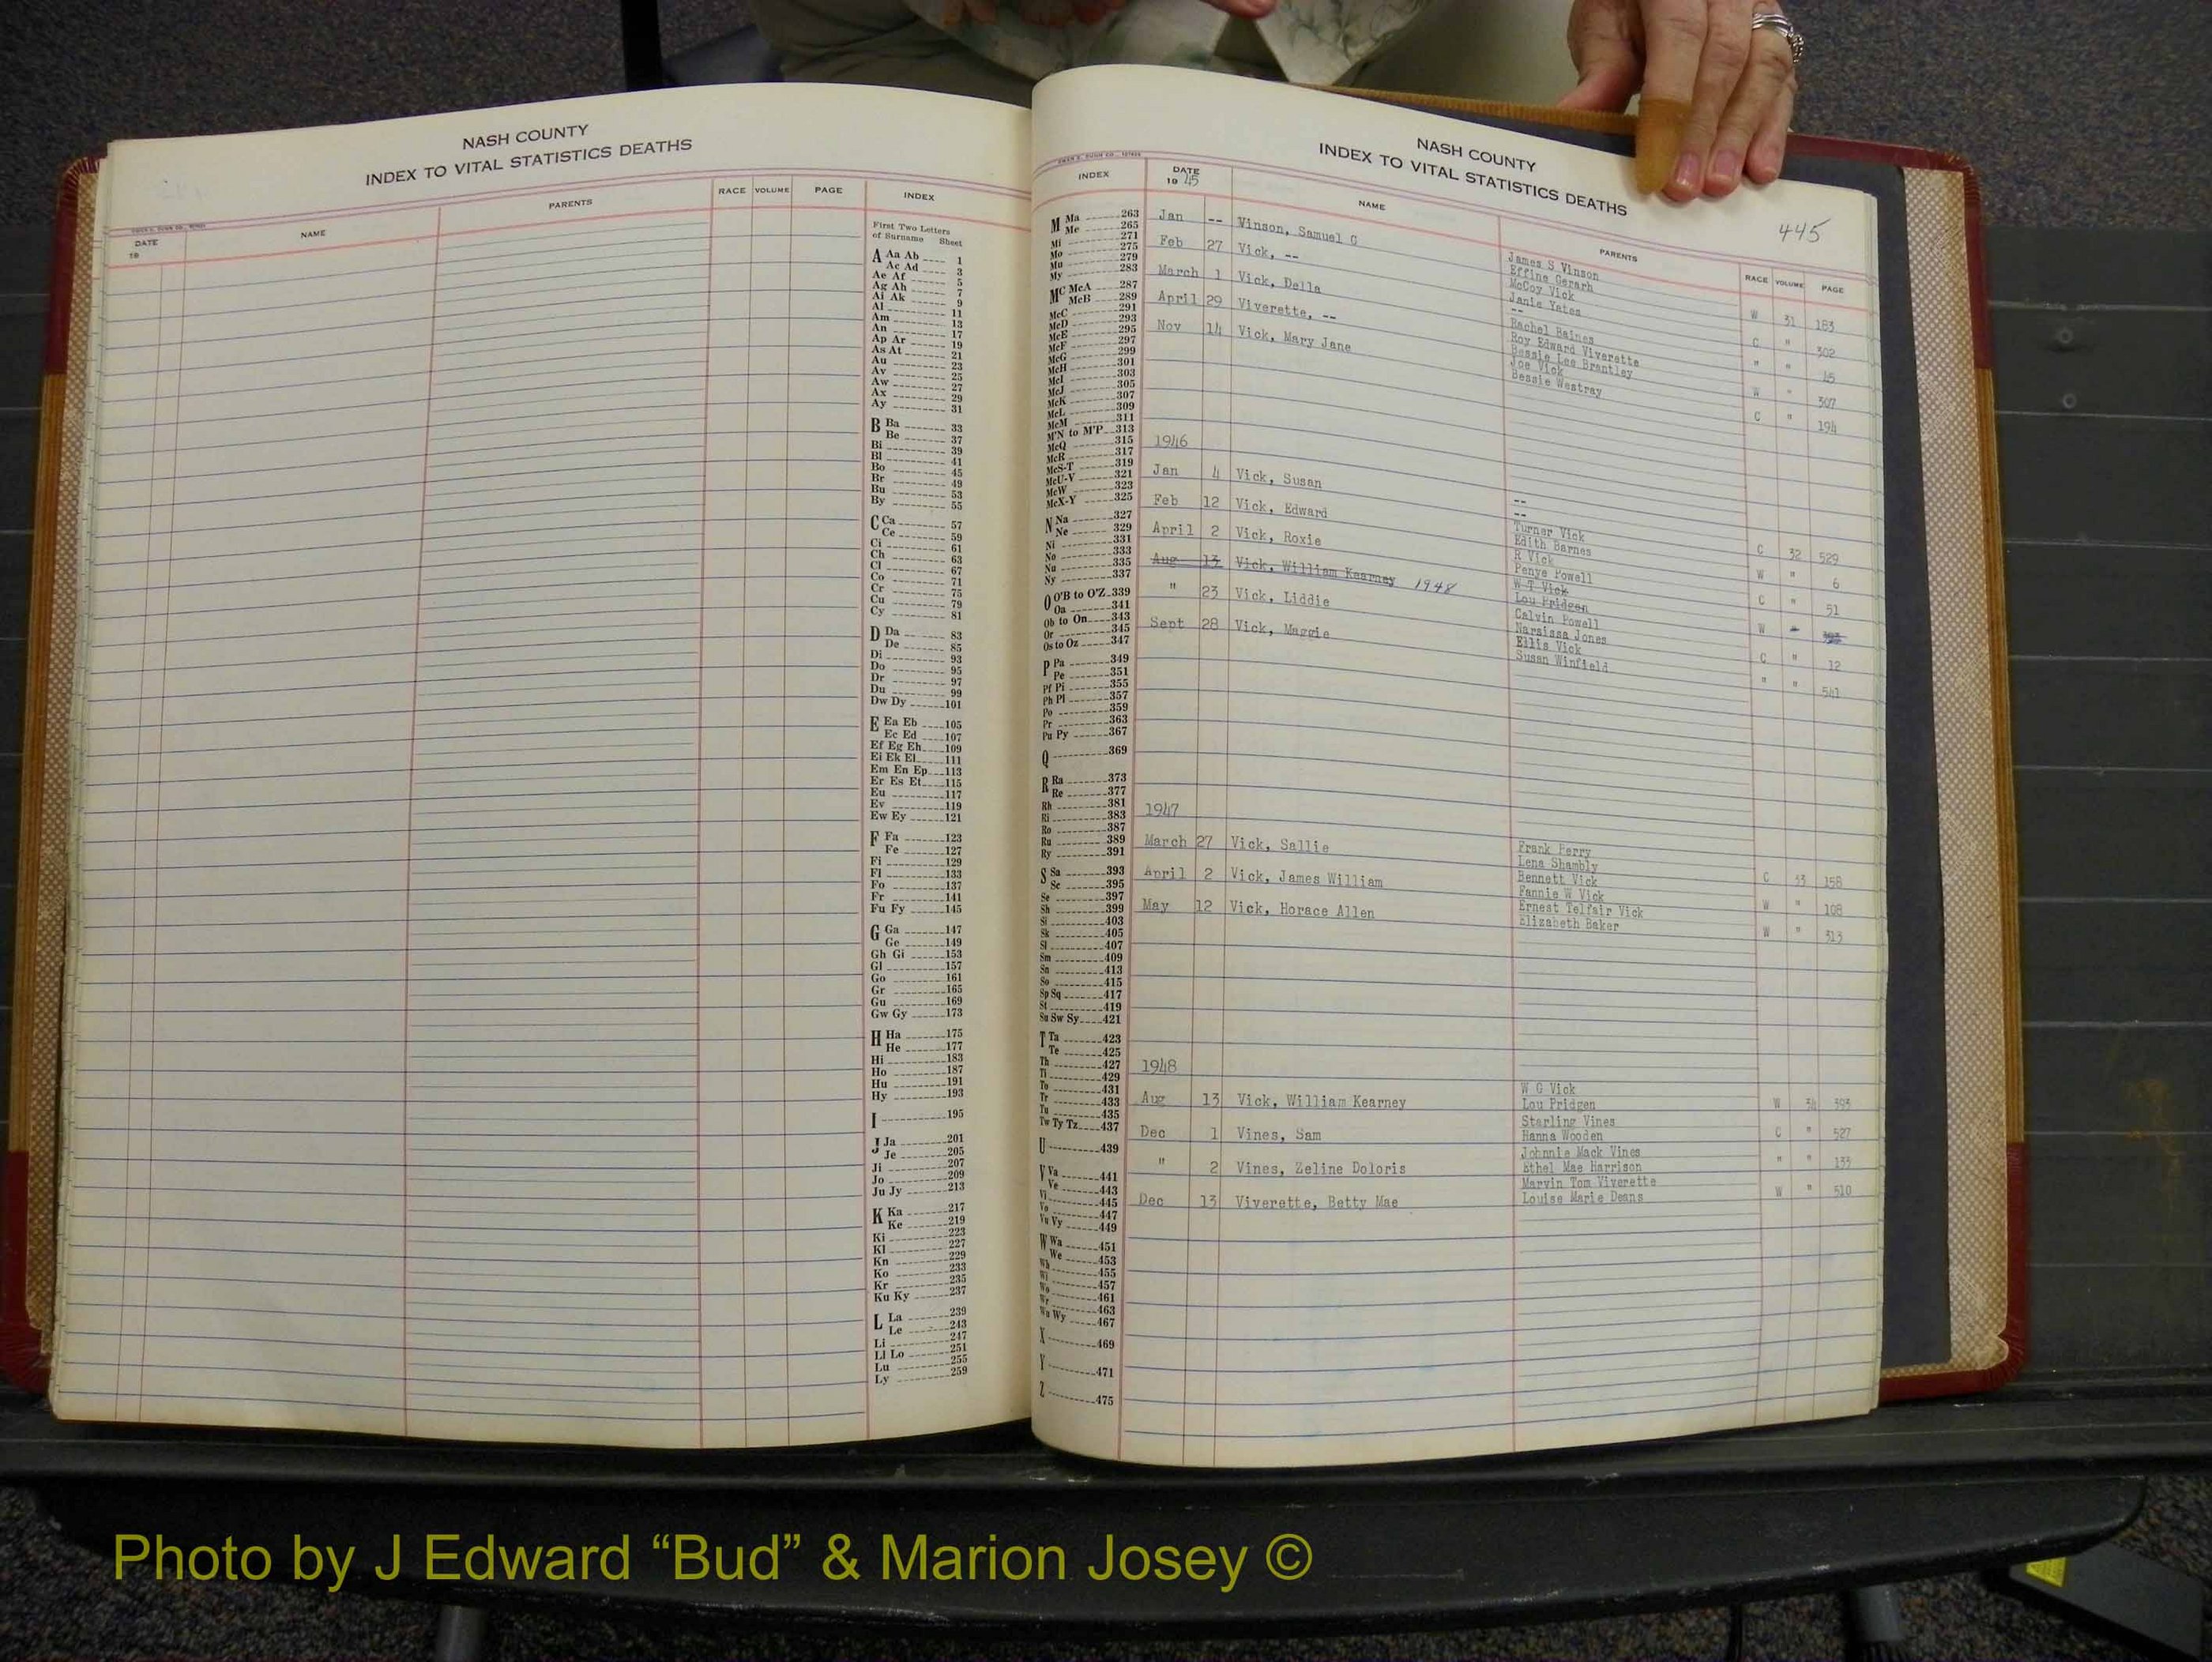 NASH COUNTY
INDEX TO VITAL STATISTICS DEATHS
DATE
19
NAME
PARENTS
RACE VOLUME PAGE INDEX
First Two Letters
of Surname Sheet
A Aa Ab 1
Ac Ad 3
Ae Af 5
Ag Ah 7
Ai Ak 9
Al 11
Am 13
An 17
Ap Ar 19
As At 21
Au 23
Av 25
Aw 27
Ax 29
Ay 31
B Ba 33
Be 37
Bi 39
Bl 41
Bo 45
Br 49
Bu 53
By 55
C Ca 57
Ce 59
Ci 61
Ch 63
Cl 67
Co 71
Cr 75
Cu 79
Cy 81
D Da 83
De 85
Di 93
Do 95
Dr 97
Du 99
Dw Dy 101
E Ea Eb 105
Ec Ed 107
Ef Eg Eh 109
Ei Ek El 111
Em En Ep 113
Er Es Et 115
Eu 117
Ev 119
Ew Ey 121
F Fa 123
Fe 127
Fi 129
Fl 133
Fo 137
Fr 141
Fu Fy 145
G Ga 147
Ge 149
Gh Gi 153
Gl 157
Go 161
Gr 165
Gu 169
Gw Gy 173
H Ha 175
He 177
Hi 183
Ho 187
Hu 191
Hy 193
I 195
J Ja 201
Je 205
Ji 207
Jo 209
Ju Jy 213
K Ka 217
Ke 219
Ki 223
Kl 227
Kn 229
Ko 233
Kr 235
Ku Ky 237
L La 239
Le 243
Li 247
Ll Lo 251
Lu 255
Ly 259
NASH COUNTY
INDEX TO VITAL STATISTICS DEATHS
445
INDEX
DATE
19 45
NAME
PARENTS
RACE VOLUME PAGE
M Ma 263
Me 265
Mi 271
Mo 275
Mu 279
My 283
MC McA 287
McB 289
McC 291
McD 293
McE 295
McF 297
McG 299
McH 301
McI 303
McJ 305
McK 307
McL 309
McM 311
M'N to M'P 313
McQ 315
McR 317
McS-T 319
McU-V 321
McW 323
McX-Y 325
N Na 327
Ne 329
Ni 331
No 333
Nu 335
Ny 337
O O'B to O'Z 339
Oa 341
Ob to On 343
Or 345
Os to Oz 347
P Pa 349
Pe 351
Pf Pi 355
Ph Pl 357
Po 359
Pr 363
Pu Py 367
Q 369
R Ra 373
Re 377
Rh 381
Ri 383
Ro 387
Ru 389
Ry 391
S Sa 393
Sc 395
Se 397
Sh 399
Si 403
Sk 405
Sl 407
Sm 409
Sn 413
So 415
Sp Sq 417
St 419
Su Sw Sy 421
T Ta 423
Te 425
Th 427
Ti 429
To 431
Tr 433
Tu 435
Tw Ty Tz 437
U 439
V Va 441
Ve 443
Vi 445
Vo 447
Vu Vy 449
W Wa 451
We 453
Wh 455
Wi 457
Wo 461
Wr 463
Wu Wy 467
X 469
Y 471
Z 475
Jan -- Vinson, Samuel G James S Vinson
Effine Gerarh W 31 183
Feb 27 Vick, -- McCoy Vick
Janie Yates C " 302
March 1 Vick, Della --
Rachel Baines " " 45
April 29 Viverette, -- Roy Edward Viverette
Bessie Lee Brantley W " 307
Nov 14 Vick, Mary Jane Joe Vick
Bessie Westray C " 194
1946
Jan 4 Vick, Susan --
-- C 32 529
Feb 12 Vick, Edward Turner Vick
Edith Barnes W " 6
April 2 Vick, Roxie R Vick
Penye Powell C " 51
Aug 13 Vick, William Kearney 1948 W T Vick
Lou Pridgen W "
" 23 Vick, Liddie Calvin Powell
Narsissa Jones C " 12
Sept 28 Vick, Maggie Ellis Vick
Susan Winfield " " 541
1947
March 27 Vick, Sallie Frank Perry
Lena Shambly C 33 158
April 2 Vick, James William Bennett Vick
Fannie W Vick W " 108
May 12 Vick, Horace Allen Ernest Telfair Vick
Elizabeth Baker W " 313
1948
Aug 13 Vick, William Kearney W G Vick
Lou Pridgen W 34 393
Dec 1 Vines, Sam Starling Vines
Hanna Wooden C " 527
" 2 Vines, Zeline Doloris Johnnie Mack Vines
Ethel Mae Harrison " " 133
Dec 13 Viverette, Betty Mae Marvin Tom Viverette
Louise Marie Deans W " 510
Photo by J Edward “Bud” & Marion Josey ©